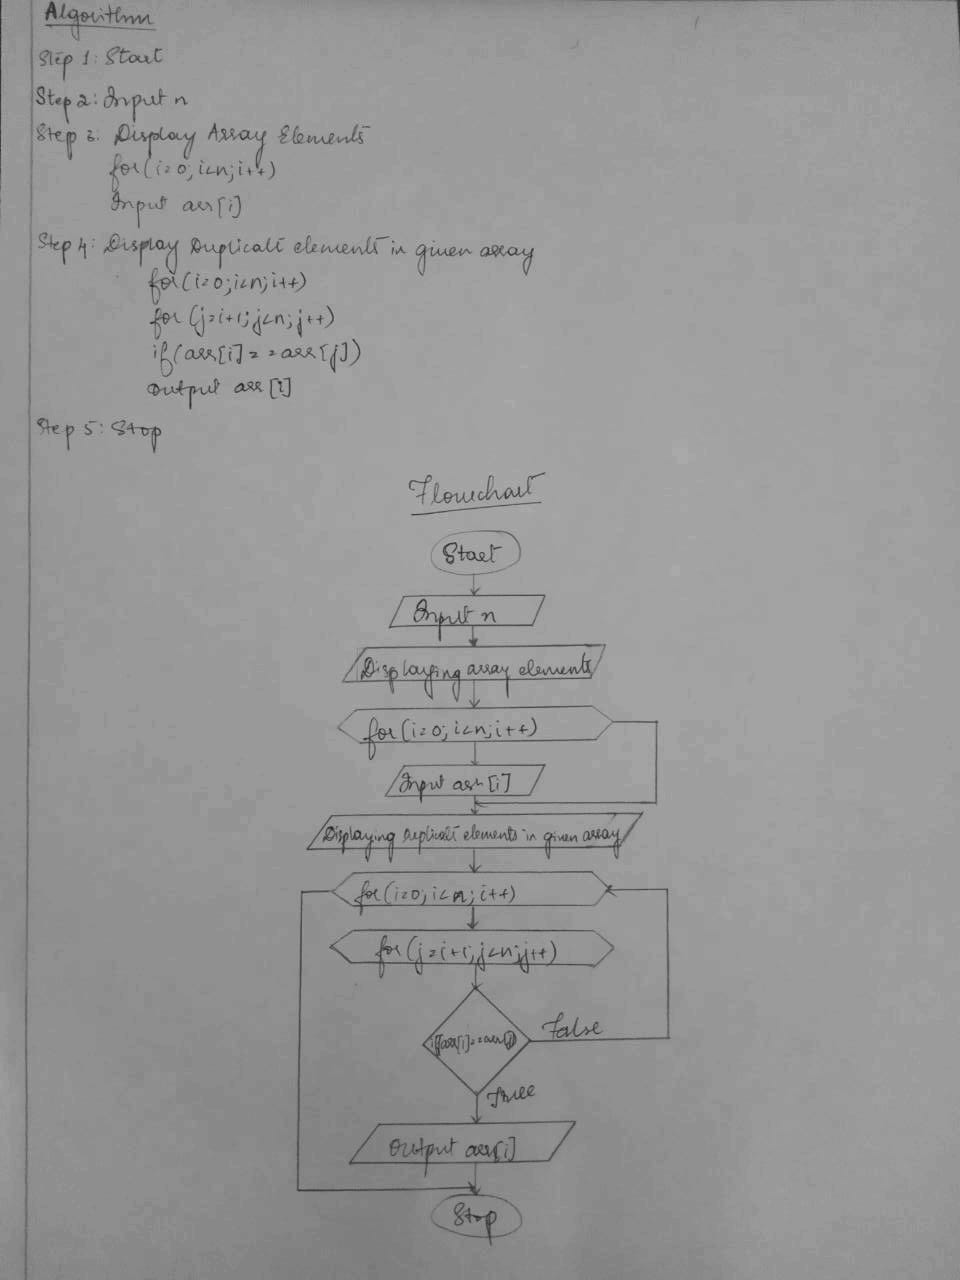 Algorithm
Step 1: Start
Step 2: Input n
Step 3: Display Array Elements
for(i=0;i<n;i++)
Input arr[i]
Step 4: Display Duplicate elements in given array
for(i=0;i<n;i++)
for(j=i+1;j<n;j++)
if(arr[i]==arr[j])
Output arr[i]
Step 5: Stop
Flowchart
Start
Input n
Displaying array elements
for(i=0;i<n;i++)
Input arr[i]
Displaying Duplicate elements in given array
for(i=0;i<n;i++)
for(j=i+1;j<n;j++)
if(arr[i]==arr[j])
False
True
Output arr[i]
Stop